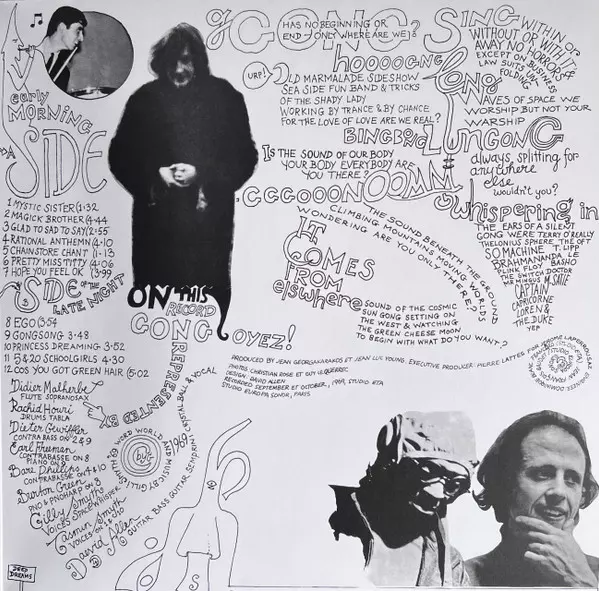 early
MORNING
SIDE
1 MYSTIC SISTER (1·32
2 MAGICK BROTHER (4·44
3 GLAD TO SAD TO SAY (2·55
4 RATIONAL ANTHEMN (4·10
5 CHAINSTORE CHANT (1·13
6 PRETTY MISS TITTY (4·06
7 HOPE YOU FEEL OK (3·99
SIDE OF THE
LATE NIGHT
8 EGO (3·54
9 GONGSONG 3·48
10 PRINCESS DREAMING 3·52
11 5 & 20 SCHOOLGIRLS 4·30
12 COS YOU GOT GREEN HAIR (5·02
Didier Malherbe
FLUTE SOPRANOSAX
Rachid Houri
DRUMS TABLA
Dieter Gewiffler
CONTRABASS ON 2 & 9
Earl Freeman
CONTRABASSE ON 8
PIANO ON 9
Barre Phillips
CONTRABASSE ON 4 & 10
Burton Green
PNO & PNOHARP ON 8
Gilly Smyth
VOICES SPACEWHISPER
Tasmin Smyth
VOICES ON
David Allen
GUITAR BASS GUITAR
VOCAL
DEEP
DREAMS
ON THIS
RECORD
GONG
REPRESENTED
BY
WORD WORLD AND
MUSIC BY GILLI SMYTH
1969
g GONG SING
HAS NO BEGINNING OR
END - ONLY WHERE ARE WE?
WITHIN OR
WITHOUT OR WITH IT
AWAY NO HORRORS OF
EXCEPT ON BUSINESS
LAW SUITS UN
FOLDING
hoooogng
long
(URP!) OLD MARMALADE SIDESHOW
SEA SIDE FUN BAND & TRICKS
OF THE SHADY LADY
WORKING BY TRANCE & BY CHANCE
FOR THE LOVE OF LOVE ARE WE REAL?
WAVES OF SPACE WE
WORSHIP BUT NOT YOUR
WARSHIP
BINGBONG LUNGONG
always, splitting for
anywhere
else
wouldn't you?
IS THE SOUND OF OUR BODY
YOUR BODY EVERYBODY ARE
YOU THERE?
.GGGOOONOOMN
whispering in
THE SOUND BENEATH THE GROUND
CLIMBING MOUNTAINS MOVING WORLDS
WONDERING ARE YOU ONLY THERE?
THE EARS OF A SILENT
GONG WERE TERRY O'REALLY
THELONIUS SPHERE THE OFT
SO MACHINE T. LIPP
BRAHMANANDA LE
PLINK FLOY BASHO
THE SWITCH DOCTOR
MR MINGUS M. SATIE
CAPTAIN
CAPRICORNE
LOREN &
THE DUKE
YEP
IT
COMES
FROM
elsewhere
SOUND OF THE COSMIC
SUN GONG SETTING ON
THE WEST & WATCHING
THE GREEN CHEESE MOON
TO BEGIN WITH WHAT DO YOU WANT?
OYEZ!
PRODUCED BY JEAN GEORGAKARAKOS ET JEAN LUC YOUNG. EXECUTIVE PRODUCER: PIERRE LATTES
PHOTOS CHRISTIAN ROSE ET GUY LE QUERREC
DESIGN: DAVID ALLEN
RECORDED SEPTEMBRE ET OCTOBER, 1969, STUDIO ETA
STUDIO EUROPA SONOR, PARIS